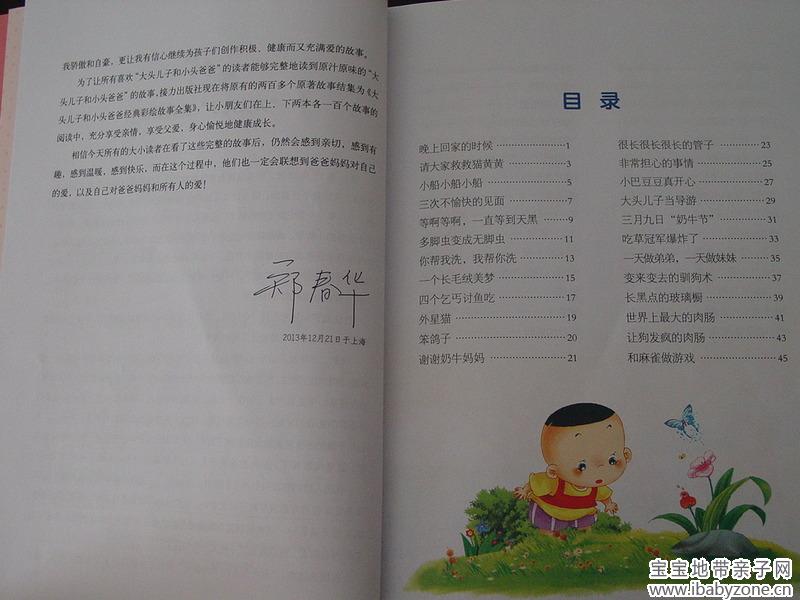 我骄傲和自豪，更让我有信心继续为孩子们创作积极、健康而又充满爱的故事。
为了让所有喜欢“大头儿子和小头爸爸”的读者能够完整地读到原汁原味的“大
头儿子和小头爸爸”的故事，接力出版社现在将原有的两百多个原著故事结集为《大
头儿子和小头爸爸经典彩绘故事全集》，让小朋友们在上、下两本各一百个故事的
阅读中，充分享受亲情，享受父爱，身心愉悦地健康成长。
相信今天所有的大小读者在看了这些完整的故事后，仍然会感到亲切，感到有
趣，感到温暖，感到快乐，而在这个过程中，他们也一定会联想到爸爸妈妈对自己
的爱，以及自己对爸爸妈妈和所有人的爱！
郑春华
2013年12月21日于上海
目 录
晚上回家的时候……………1
请大家救救猫黄黄…………3
小船小船小船………………5
三次不愉快的见面…………7
等啊等啊，一直等到天黑……9
多脚虫变成无脚虫…………11
你帮我洗，我帮你洗………13
一个长毛绒美梦……………15
四个乞丐讨鱼吃……………17
外星猫………………………19
笨鸽子………………………20
谢谢奶牛妈妈………………21
很长很长很长的管子………23
非常担心的事情……………25
小巴豆豆真开心……………27
大头儿子当导游……………29
三月九日“奶牛节”…………31
吃草冠军爆炸了……………33
一天做弟弟，一天做妹妹……35
变来变去的驯狗术…………37
长黑点的玻璃橱……………39
世界上最大的肉肠…………41
让狗发疯的肉肠……………43
和麻雀做游戏………………45
宝宝地带亲子网
www.ibabyzone.cn